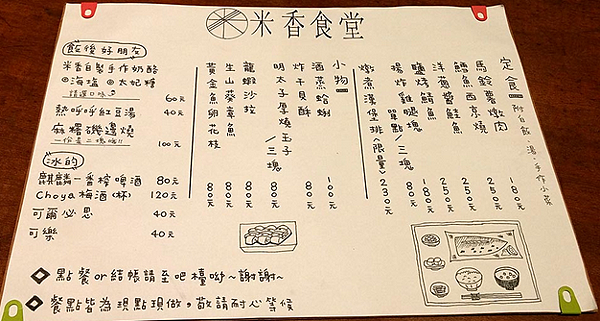 米香食堂
定食 附白飯、湯、手作小菜
馬鈴薯燉肉 180元
鱈魚西京燒 250元
洋蔥鮭魚 250元
鹽烤鯖魚 180元
揚炸雞腿塊 單點/三塊 80元
燉煮漢堡排(限量) 230元
小物
酒蒸蛤蜊 100元
炸干貝酥 80元
明太子厚燒玉子/三塊 80元
龍蝦沙拉 80元
生山葵章魚 80元
黃金魚卵花枝 80元
飯後好朋友
米香自製手作奶酪
◎海鹽 ◎太妃糖
請選口味 60元
熱呼呼紅豆湯 40元
麻糬磯邊燒
一份是二塊唷!! 100元
冰的
麒麟一番榨啤酒 80元
Choya梅酒(杯) 120元
可爾必思 40元
可樂 40元
◆點餐or結帳請至吧檯呦~謝謝~
◆餐點皆為現點現做,敬請耐心等候